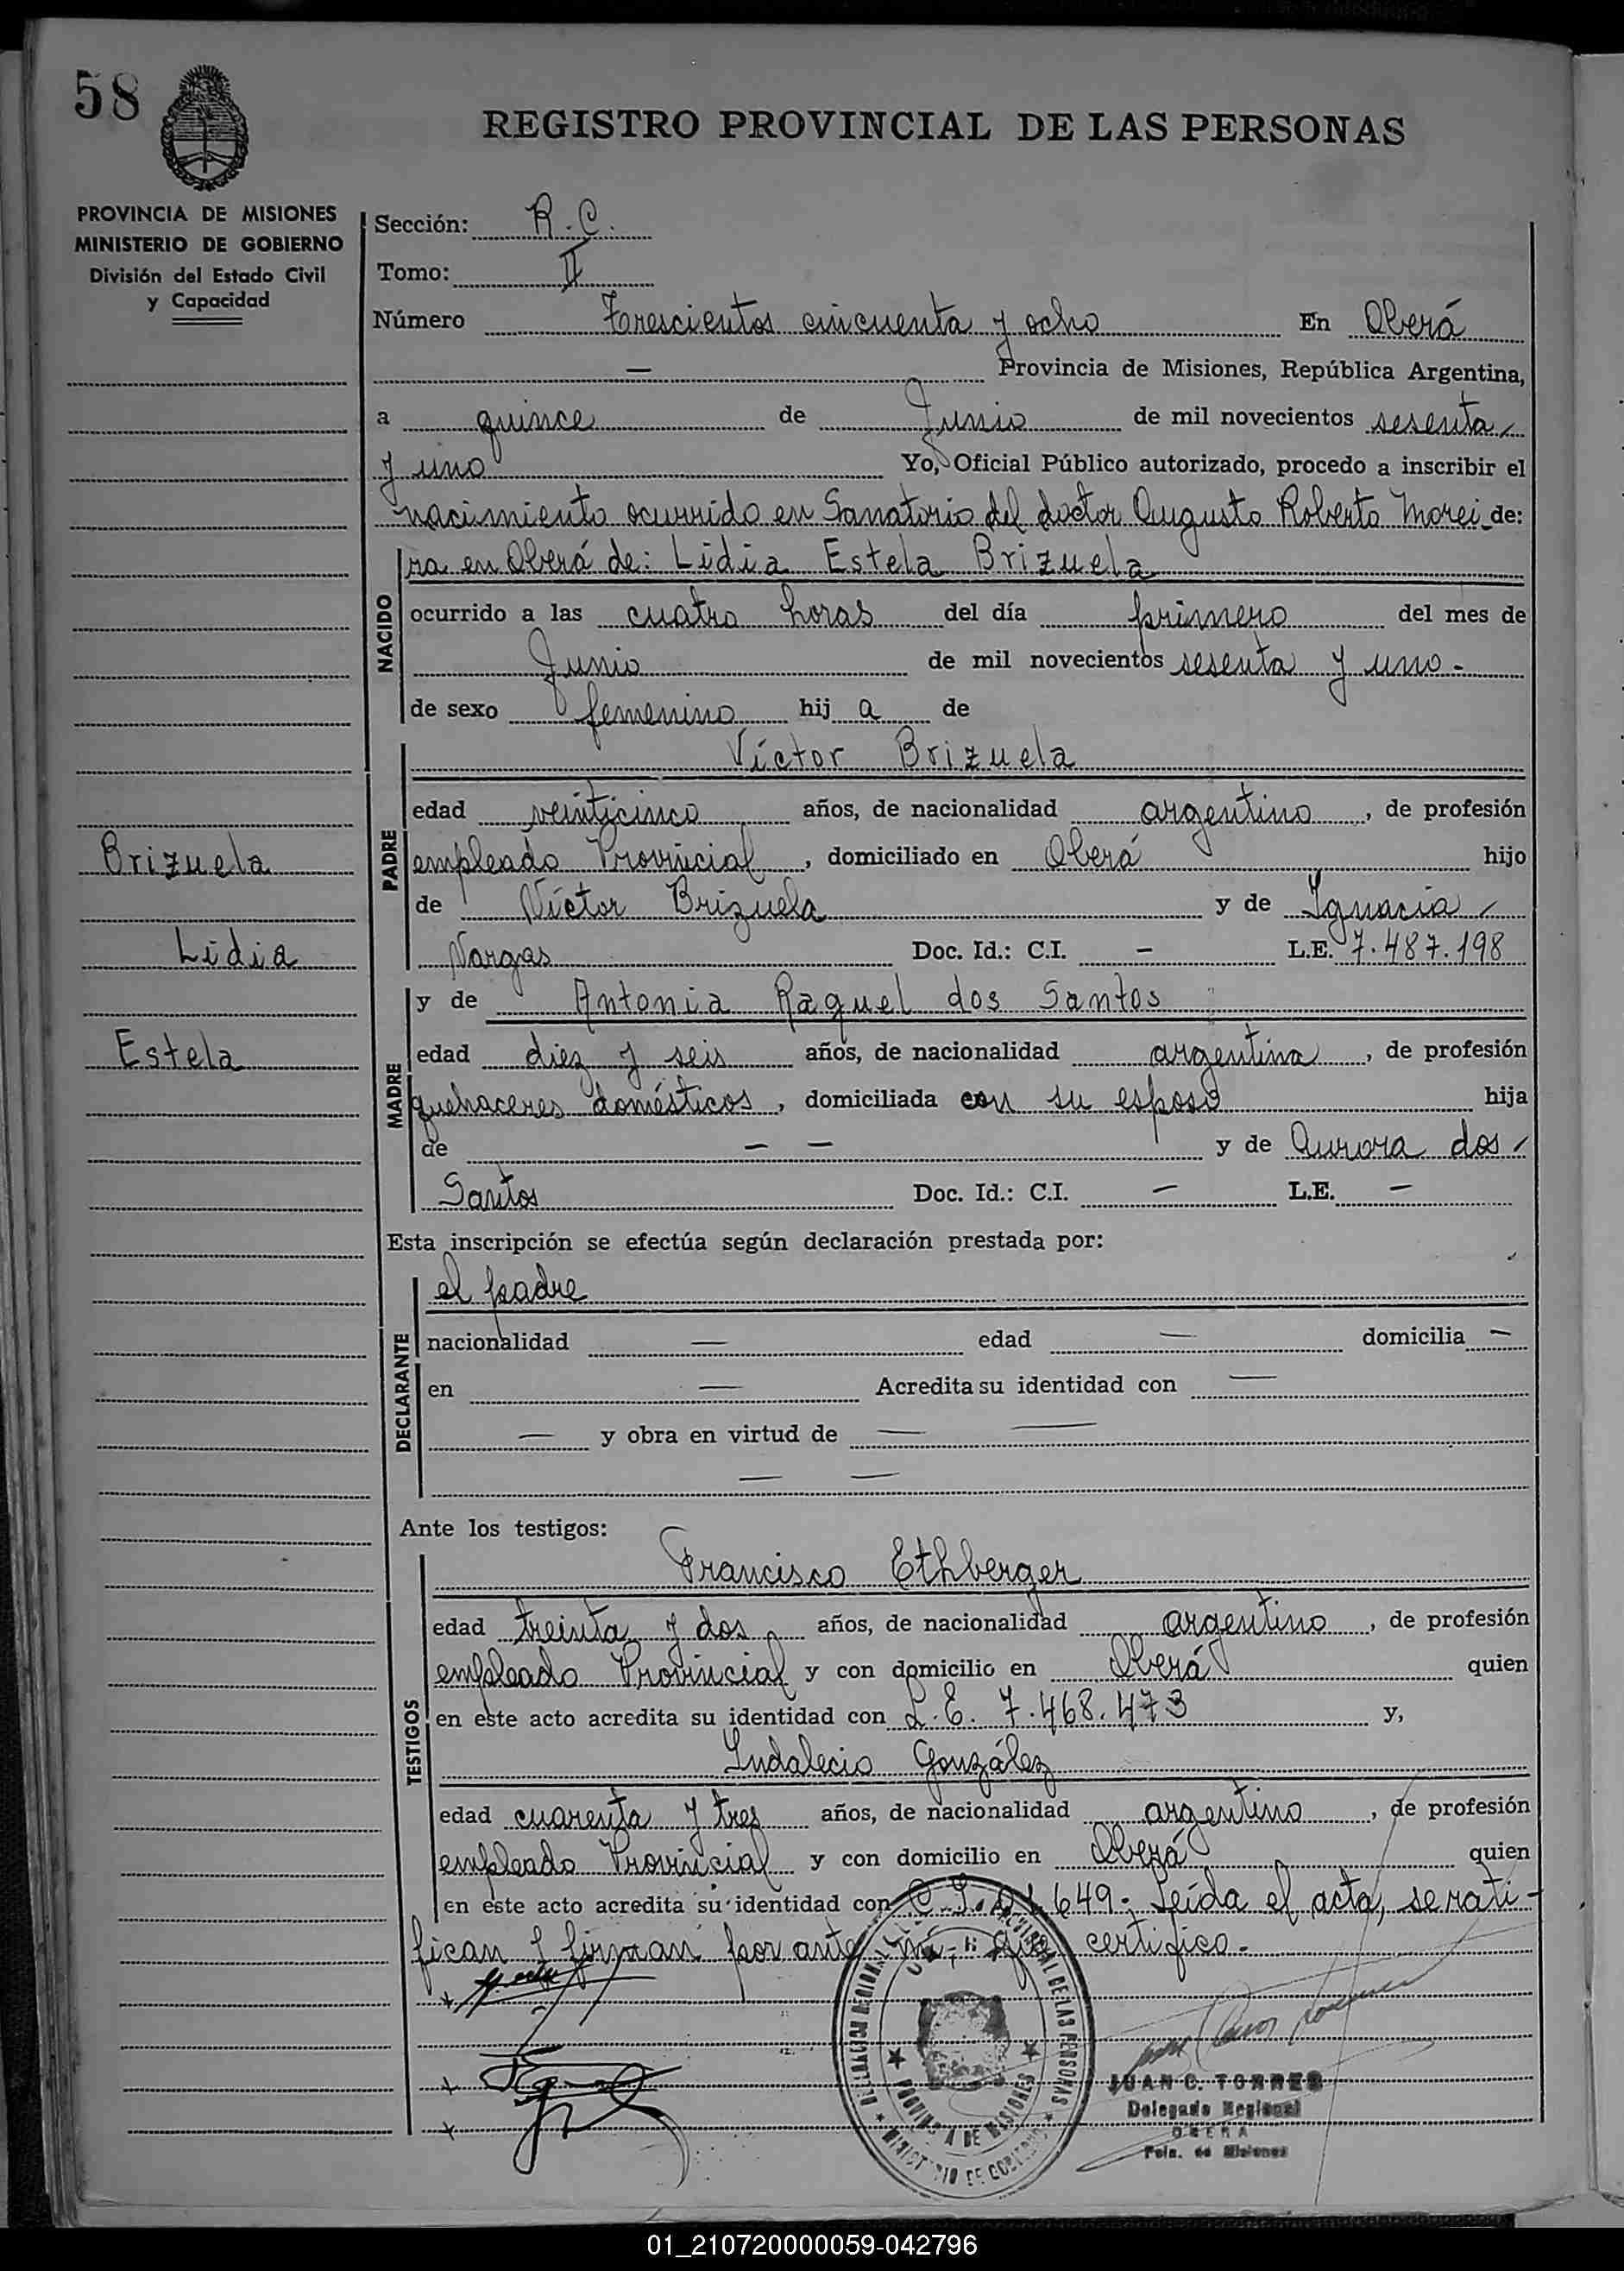 58
REGISTRO PROVINCIAL DE LAS PERSONAS
PROVINCIA DE MISIONES
MINISTERIO DE GOBIERNO
División del Estado Civil
y Capacidad
Sección: R. C.
Tomo: II
Número Trescientos cincuenta y ocho En Oberá
— Provincia de Misiones, República Argentina,
a quince de Junio de mil novecientos sesenta
y uno Yo, Oficial Público autorizado, procedo a inscribir el
nacimiento ocurrido en Sanatorio del doctor Augusto Roberto Morei de:
ra en Oberá de: Lidia Estela Brizuela
NACIDO
ocurrido a las cuatro horas del día primero del mes de
Junio de mil novecientos sesenta y uno -
de sexo femenino hij a de
Víctor Brizuela
PADRE
edad veinticinco años, de nacionalidad argentino, de profesión
empleado Provincial, domiciliado en Oberá hijo
de Víctor Brizuela y de Ignacia
Vargas Doc. Id.: C.I. — L.E. 7.487.198
Brizuela
Lidia
Estela
y de Antonia Raquel dos Santos
MADRE
edad diez y seis años, de nacionalidad argentina, de profesión
quehaceres domésticos, domiciliada con su esposo hija
de — — y de Aurora dos
Santos Doc. Id.: C.I. — L.E. —
Esta inscripción se efectúa según declaración prestada por:
el padre
DECLARANTE
nacionalidad — edad — domicilia —
en — Acredita su identidad con —
— y obra en virtud de — —
— —
Ante los testigos:
Francisco Ethberger
TESTIGOS
edad treinta y dos años, de nacionalidad argentino, de profesión
empleado Provincial y con domicilio en Oberá quien
en este acto acredita su identidad con L.E. 7.468.473 y,
Indalecio González
edad cuarenta y tres años, de nacionalidad argentino, de profesión
empleado Provincial y con domicilio en Oberá quien
en este acto acredita su identidad con C.I. 649; Leída el acta, se rati-
fican y firman por ante mí, que certifico.-
JUAN C. TORRES
Delegado Regional
OBERA
Pcia. de Misiones
PROVINCIA DE MISIONES
MINISTERIO DE GOBIERNO
01_210720000059-042796